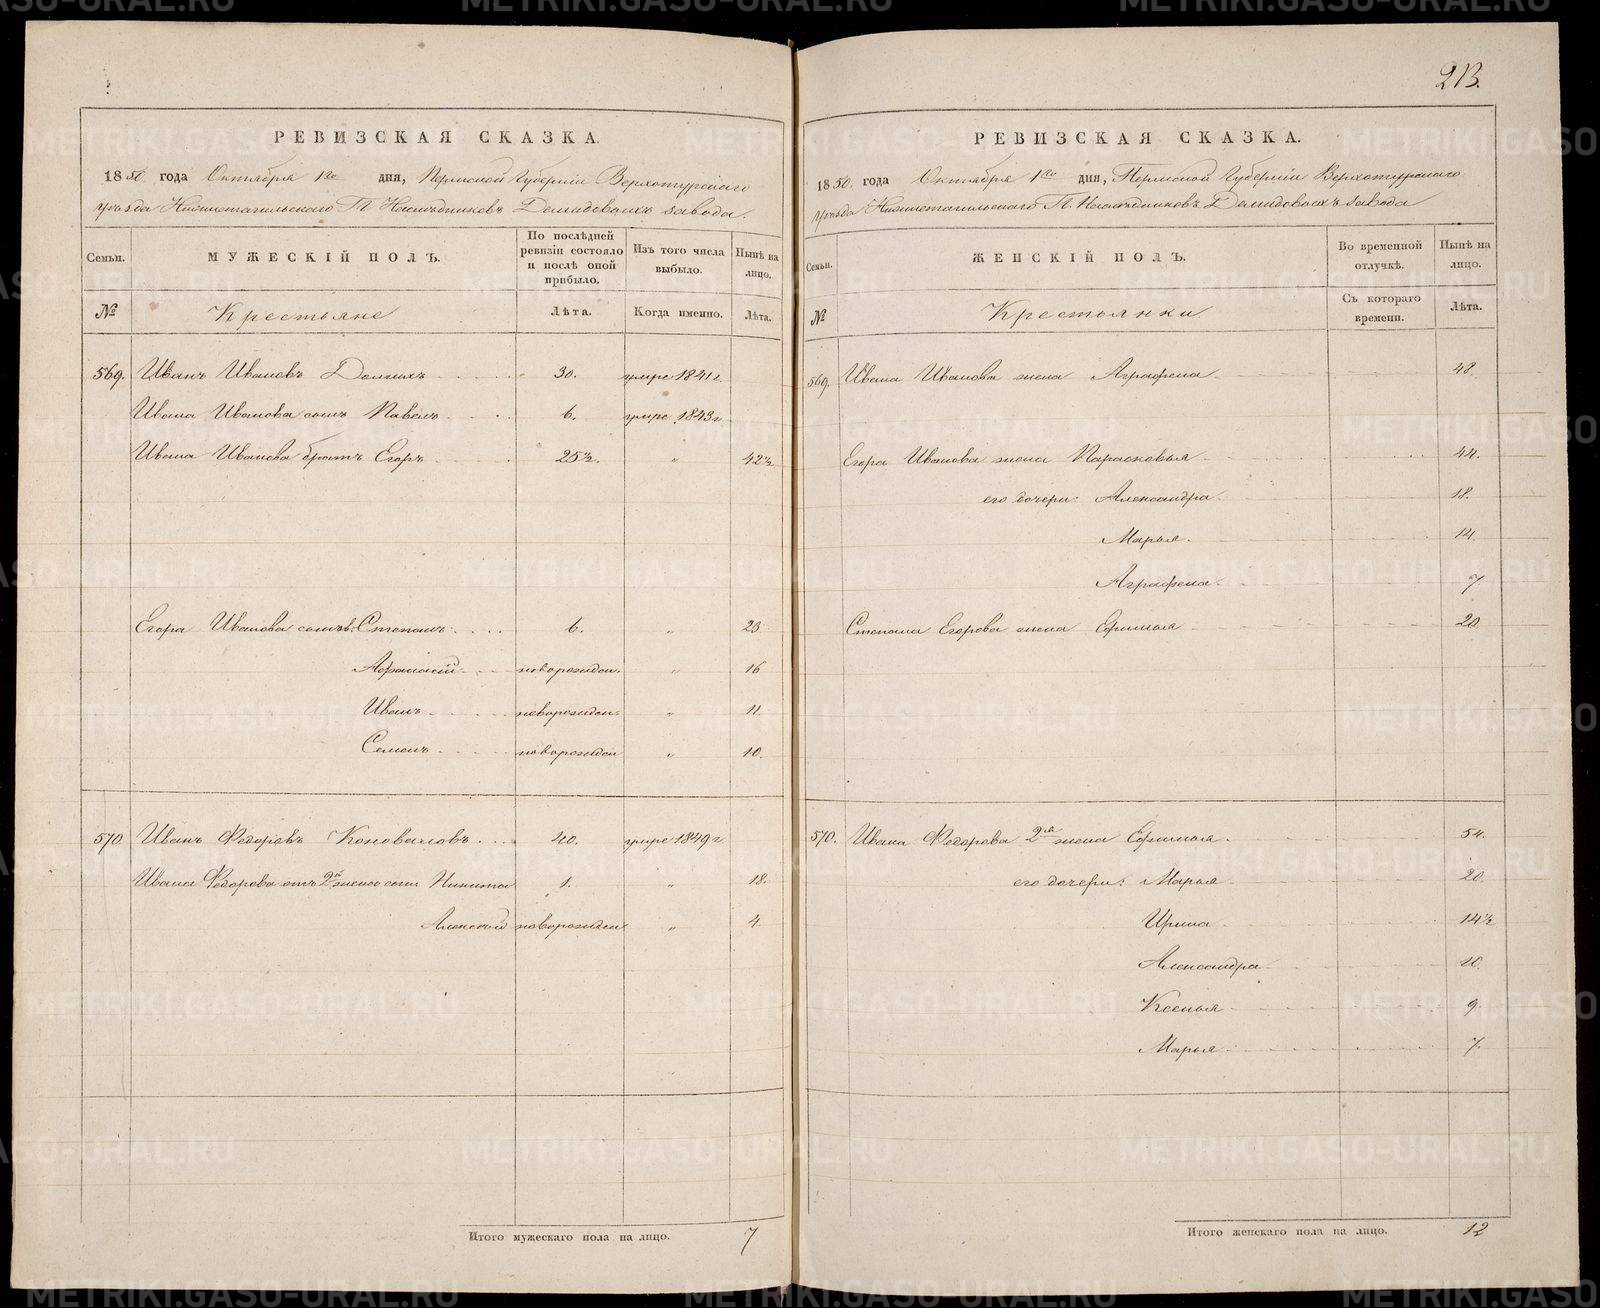 213.
РЕВИЗСКАЯ СКАЗКА.
1850 года Октября 1го дня, Пермской Губерніи Верхотурскаго
уѣзда Нижнетагильскаго Г. Наслѣдниковъ Демидовыхъ завода.
Семьи. МУЖЕСКІЙ ПОЛЪ. По послѣдней ревизіи состояло и послѣ оной прибыло. Изъ того числа выбыло. Нынѣ на лицо.
№ Крестьяне Лѣта. Когда именно. Лѣта.
569. Иванъ Ивановъ Долгихъ 30. умре 1841 г.
Ивана Иванова сынъ Павелъ 6. умре 1843 г
Ивана Иванова братъ Егоръ 25½. " 42½
Егора Иванова сыновья: Степанъ 6. " 23
Афанасій новорожден. " 16
Иванъ новорожден. " 11.
Семенъ новорожден " 10.
570. Иванъ Федоровъ Коноваловъ 40. умре 1849 г.
Ивана Федорова отъ 2й жены сын Никита 1. " 18.
Алексѣй новорожден " 4.
Итого мужескаго пола на лицо. 7
РЕВИЗСКАЯ СКАЗКА.
1850 года Октября 1го дня, Пермской Губерніи Верхотурскаго
уѣзда Нижнетагильскаго Г. Наслѣдниковъ Демидовыхъ завода
Семьи. ЖЕНСКІЙ ПОЛЪ. Во временной отлучкѣ. Нынѣ на лицо.
№ Крестьянки Съ котораго времени. Лѣта.
569. Ивана Иванова жена Аграфена 48.
Егора Иванова жена Парасковья 44.
его дочери: Александра 18.
Марья. 14
Аграфена 7
Степана Егорова жена Ефимья 20.
570. Ивана Федорова 2я жена Ефимья. 54.
его дочери: Марья 20
Ирина 14½
Александра 10.
Ксенья 9
Марья 7.
Итого женскаго пола на лицо. 12
METRIKI.GASO-URAL.RU